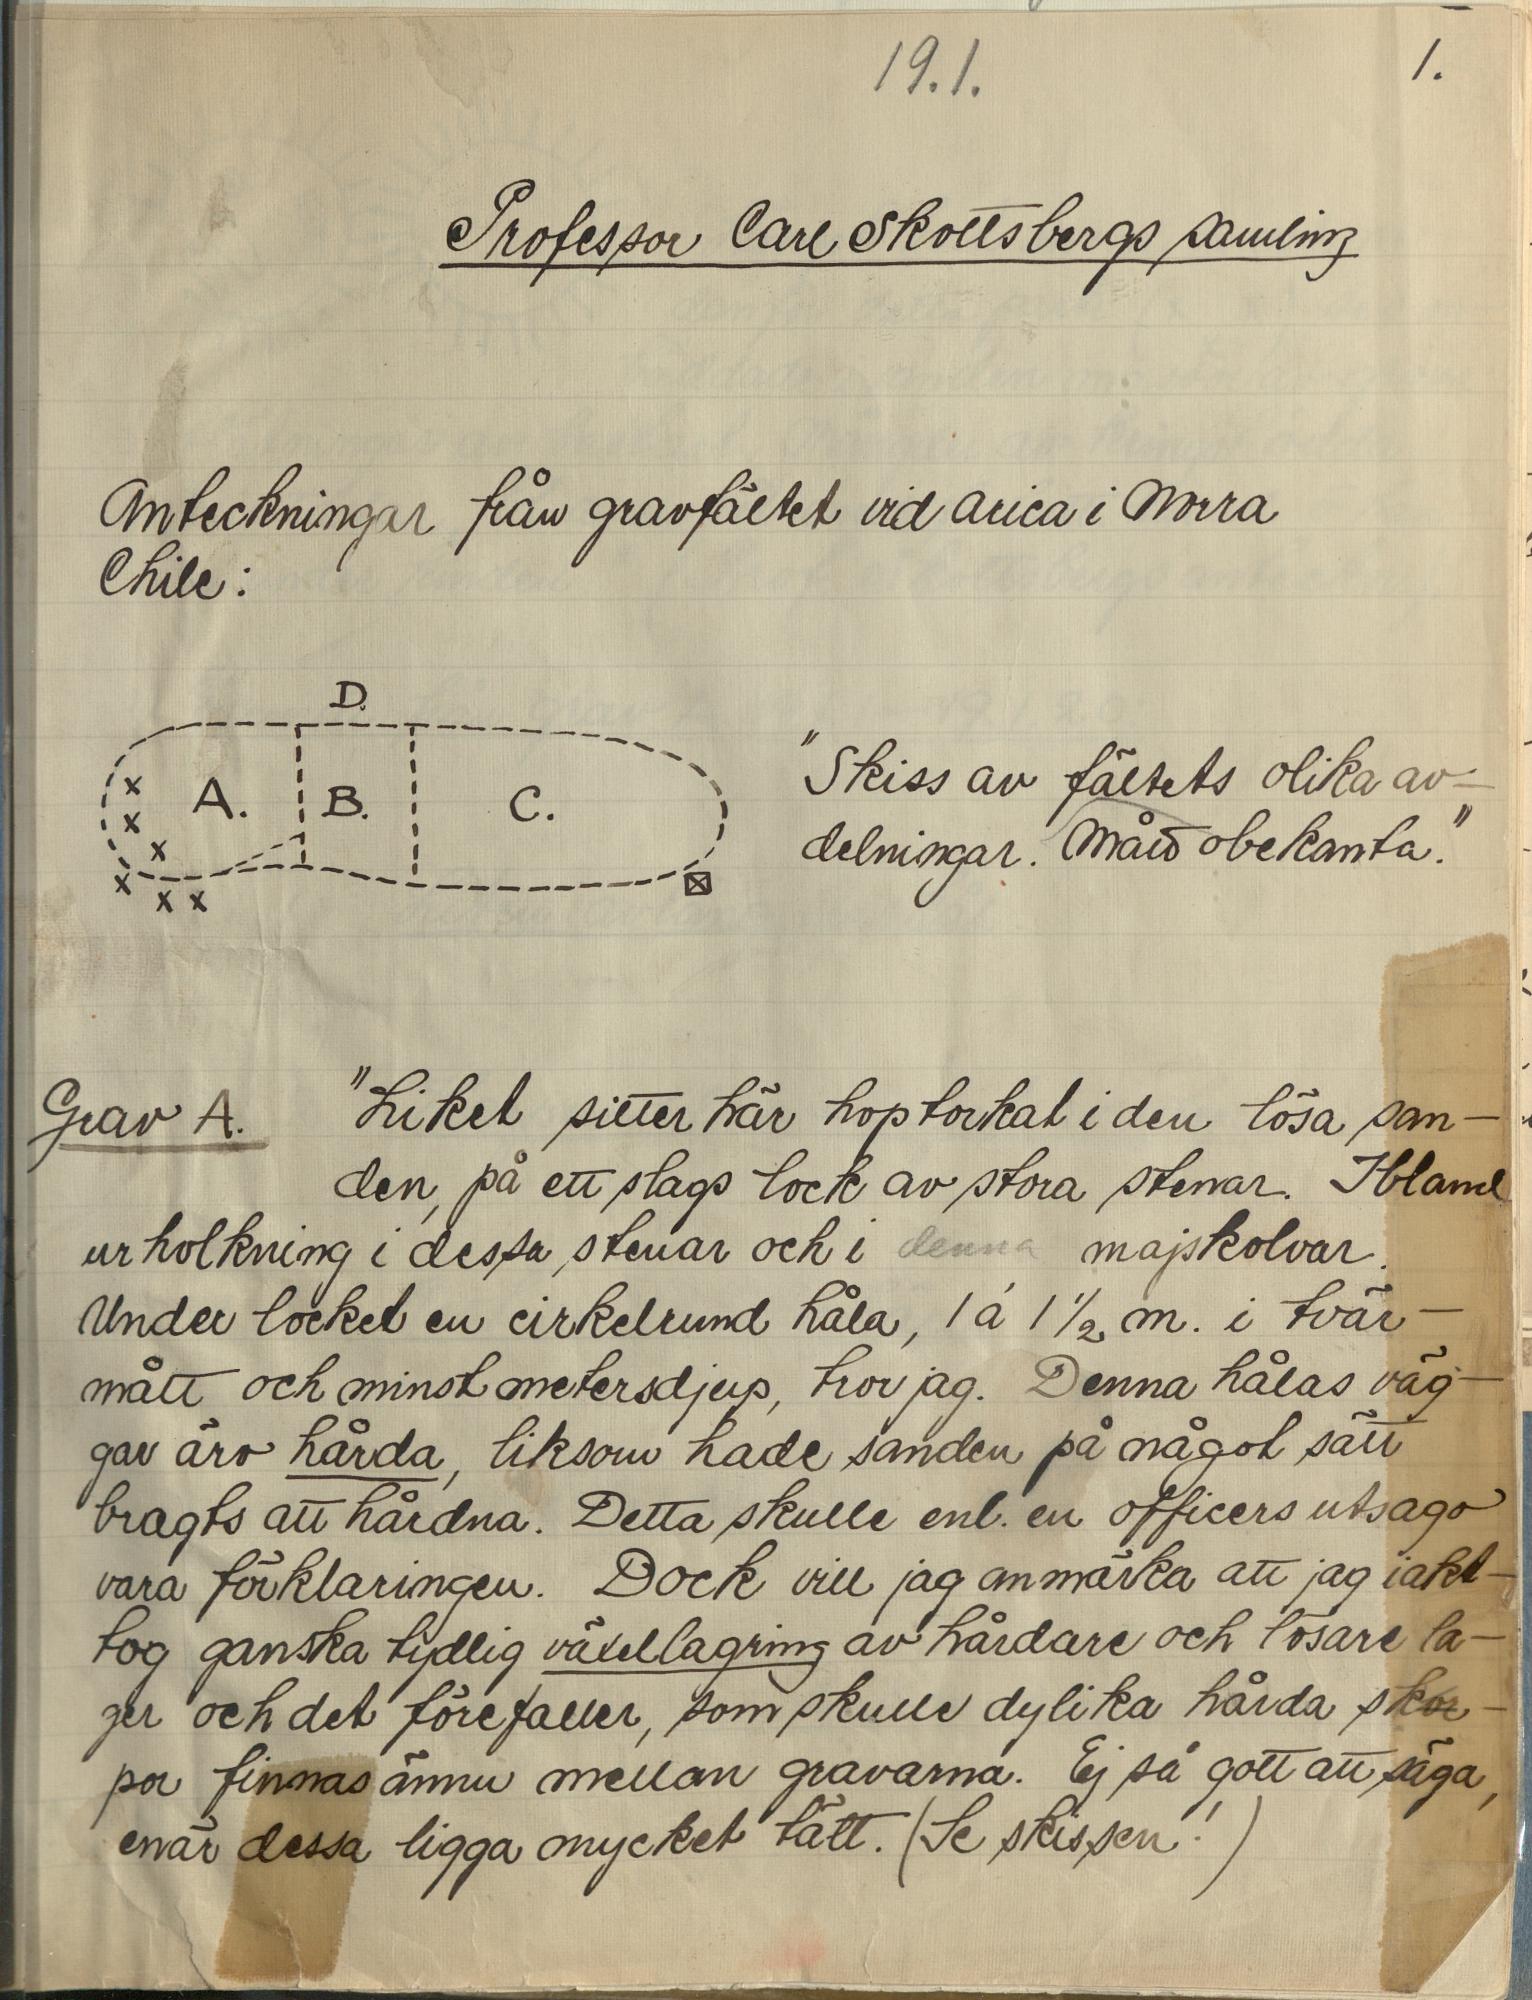 19.1.
1.
Professor Carl Skottsbergs samling
Anteckningar från gravfältet vid Arica i Norra
Chile:
D.
A.
B.
C.
x
x
x
x
x x
"Skiss av fältets olika av-
delningar. Mått obekanta."
Grav A.
"Liket sitter här hoptorkat i den lösa san-
den, på ett slags lock av stora stenar. Ibland
urholkning i dessa stenar och i denna majskolvar.
Under locket en cirkelrund håla, 1 á 1 1/2 m. i tvär-
mått och minst metersdjup, tror jag. Denna hålas väg-
gar äro hårda, liksom hade sanden på något sätt
bragts att hårdna. Detta skulle enl. en officers utsago
vara förklaringen. Dock vill jag anmärka att jag iakt-
tog ganska tydlig växellagring av hårdare och lösare la-
ger och det förefaller, som skulle dylika hårda skor-
por finnas ännu mellan gravarna. Ej så gott att säga,
enär dessa ligga mycket tätt. (Se skissen!)